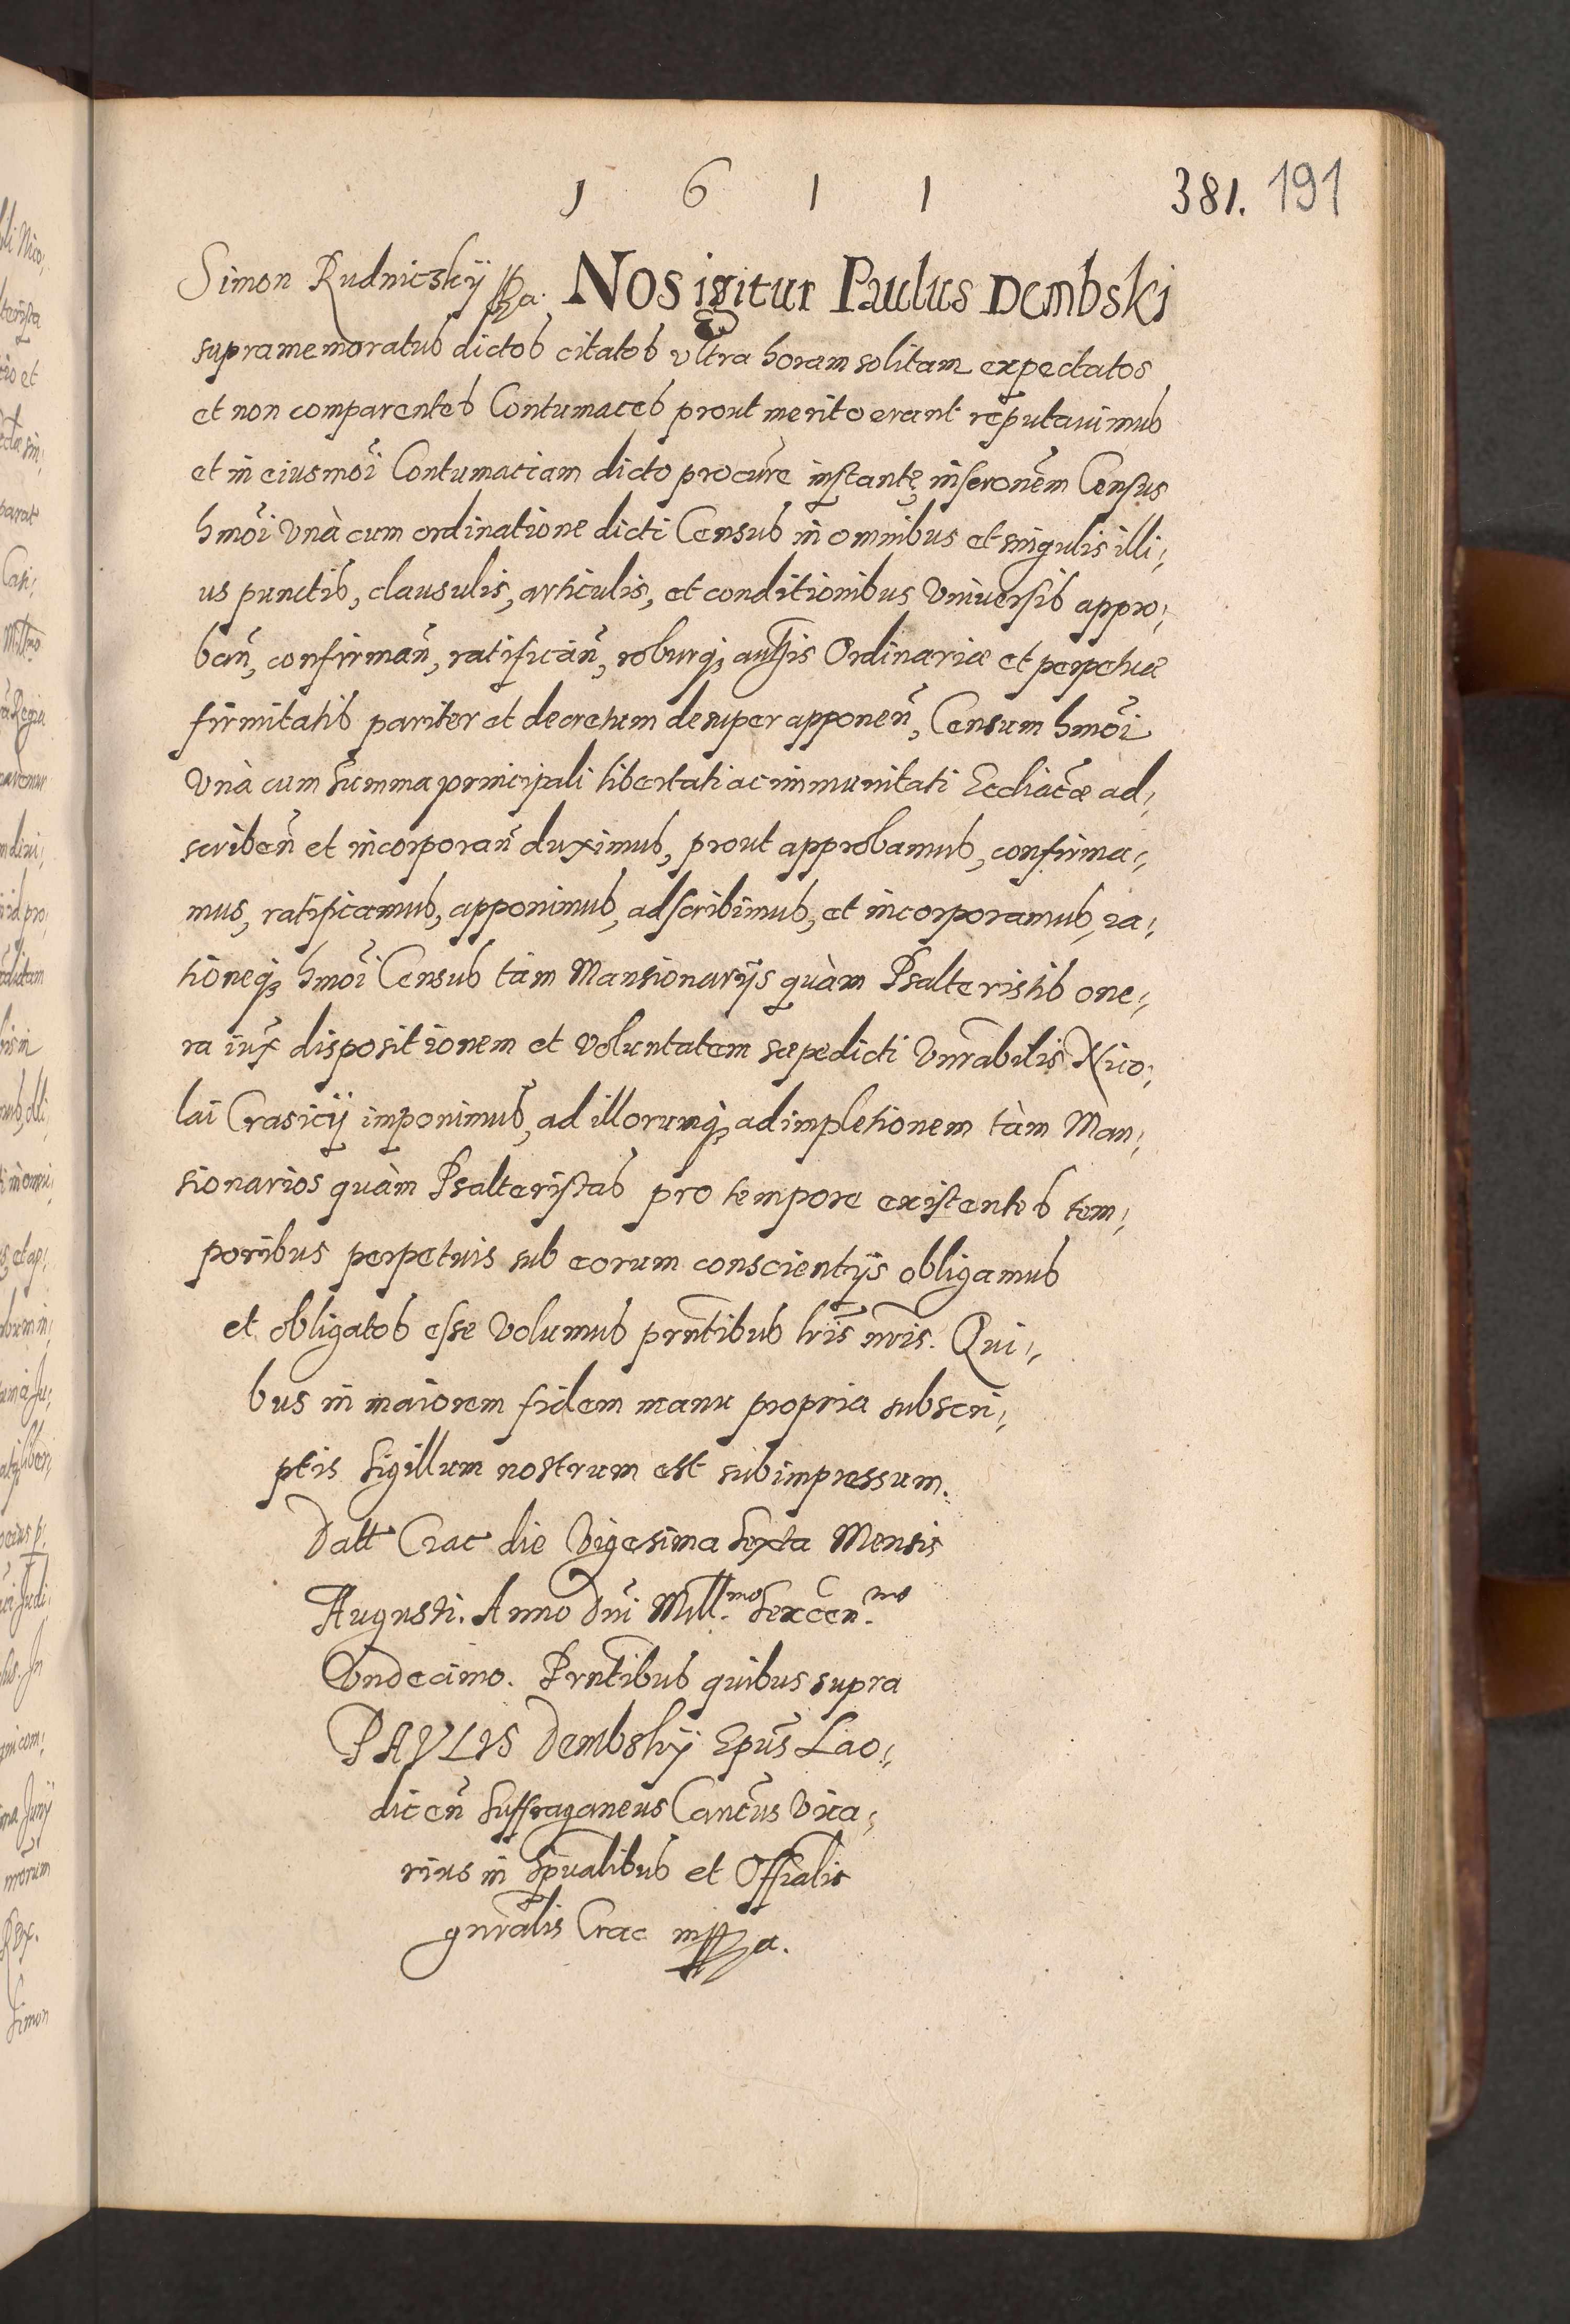 1 6 1 1
381. 191
Simon Rudniczkÿ Nos igitur Paulus Dembski
supramemoratus dictos citatos vltra horam solitam expectatos
et non comparentes Contumaces prout merito erant reputauimus
et in eiusmõi Contumaciam dicto procũre instante, inscronẽm Census
hmõi Vnà cum ordinatione dicti Census in omnibus et singulis illi,
us punctis, clausulis, articulis, et conditionibus Vniuersis appro,
bañ, confirmañ, ratificañ, roburq3 autħis Ordinariæ et perpetuæ
firmitatis pariter et decretum desuper apponeñ, Censum hmõi
Vnà cum Summa principali libertati ac immunitati Ecclãcæ ad,
scribeñ et incorporañ duximus, prout approbamus, confirma,
mus, ratificamus, apponimus, adscribimus, et incorporamus, ra,
tioneq3 hmõi Census tàm Mansionarÿs quàm Psalteristis one,
ra iux dispositionem et Voluntatem sæpedicti Vnr̃abilis Nico,
lai Crasicÿ imponimus, ad illorumq3 adimpletionem tàm Man,
sionarios quàm Psalteristas pro tempore existentes tem,
poribus perpetuis sub eorum conscientÿs obligamus
et obligatos esse Volumus prñtibus lr̃is nr̃is. Qui,
bus in maiorem fidem manu propria subscri,
ptis Sigillum nostrum est subimpressum.
Datt Crac die Vigesima Sexta Mensis
Augusti. Anno Dñi Mill.mo Sexcen.mo
Vndecimo. Prñtibus quibus supra
PAVLVS Dembskÿ Epũs Lao,
diceñ Suffraganeus Cantũs Vica,
rius in Spũalibus et Offialis
gnr̃alis Crac mppa.